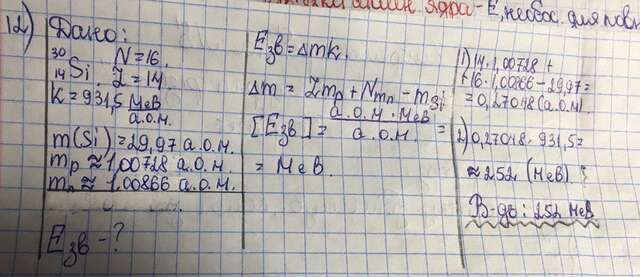 ядра - E, необх. для повн
12) Дано:
³⁰₁₄Si N=16. Z=14.
k=931,5 МеВ/а.о.м.
m(Si)=29,97 а.о.м.
mp≈1,00728 а.о.м.
mn≈1,00866 а.о.м.
Eзв - ?
Eзв=Δmk.
Δm = Zmp + Nmn - mSi
[Eзв] = а.о.м·МеВ/а.о.м. =
= МеВ.
1) 14·1,00728 +
+ 16·1,00866 - 29,97=
= 0,27048 (а.о.м)
2) 0,27048·931,5=
≈252 (МеВ).
В-дь: 252 МеВ